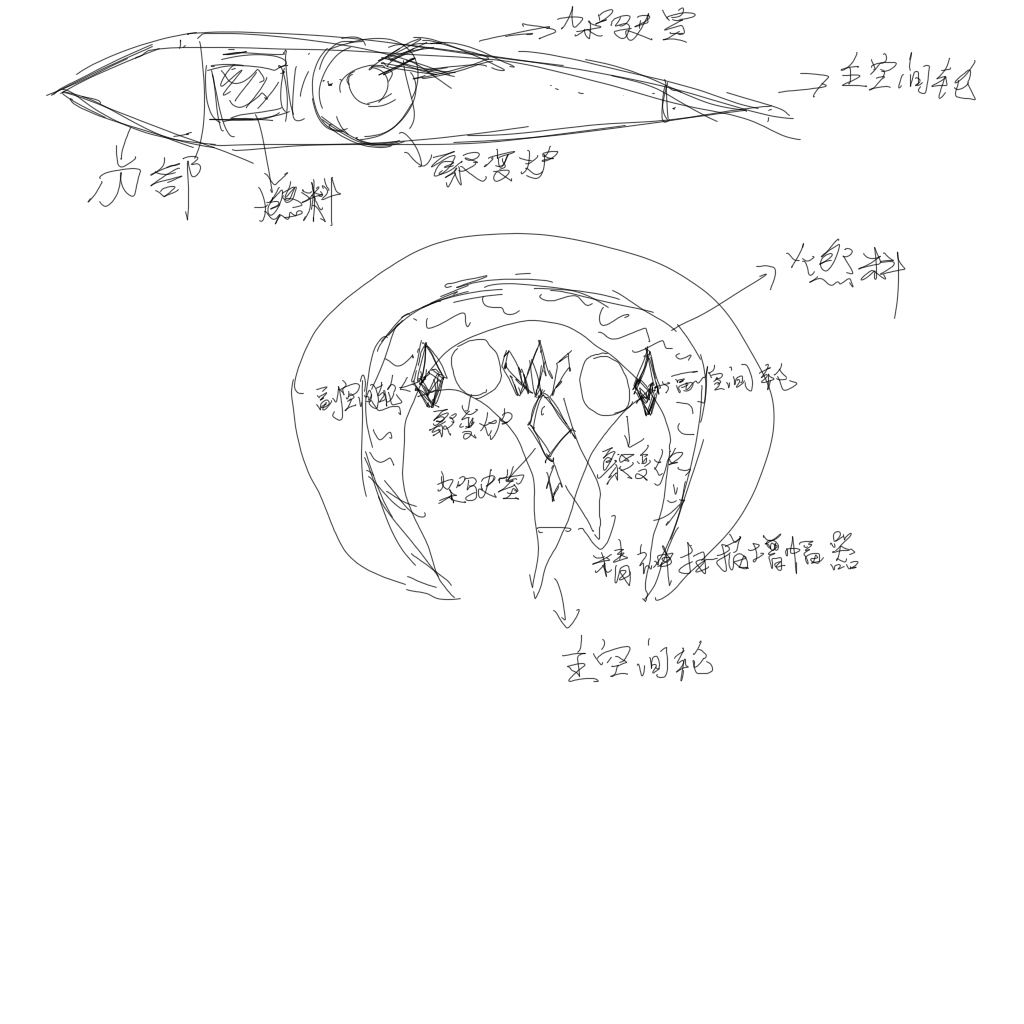 驾驶室
主空间轮
内部
燃料
聚变炉
燃料
副空间轮
副空间轮
聚变炉
聚变炉
驾驶室
精神扫描增幅器
主空间轮